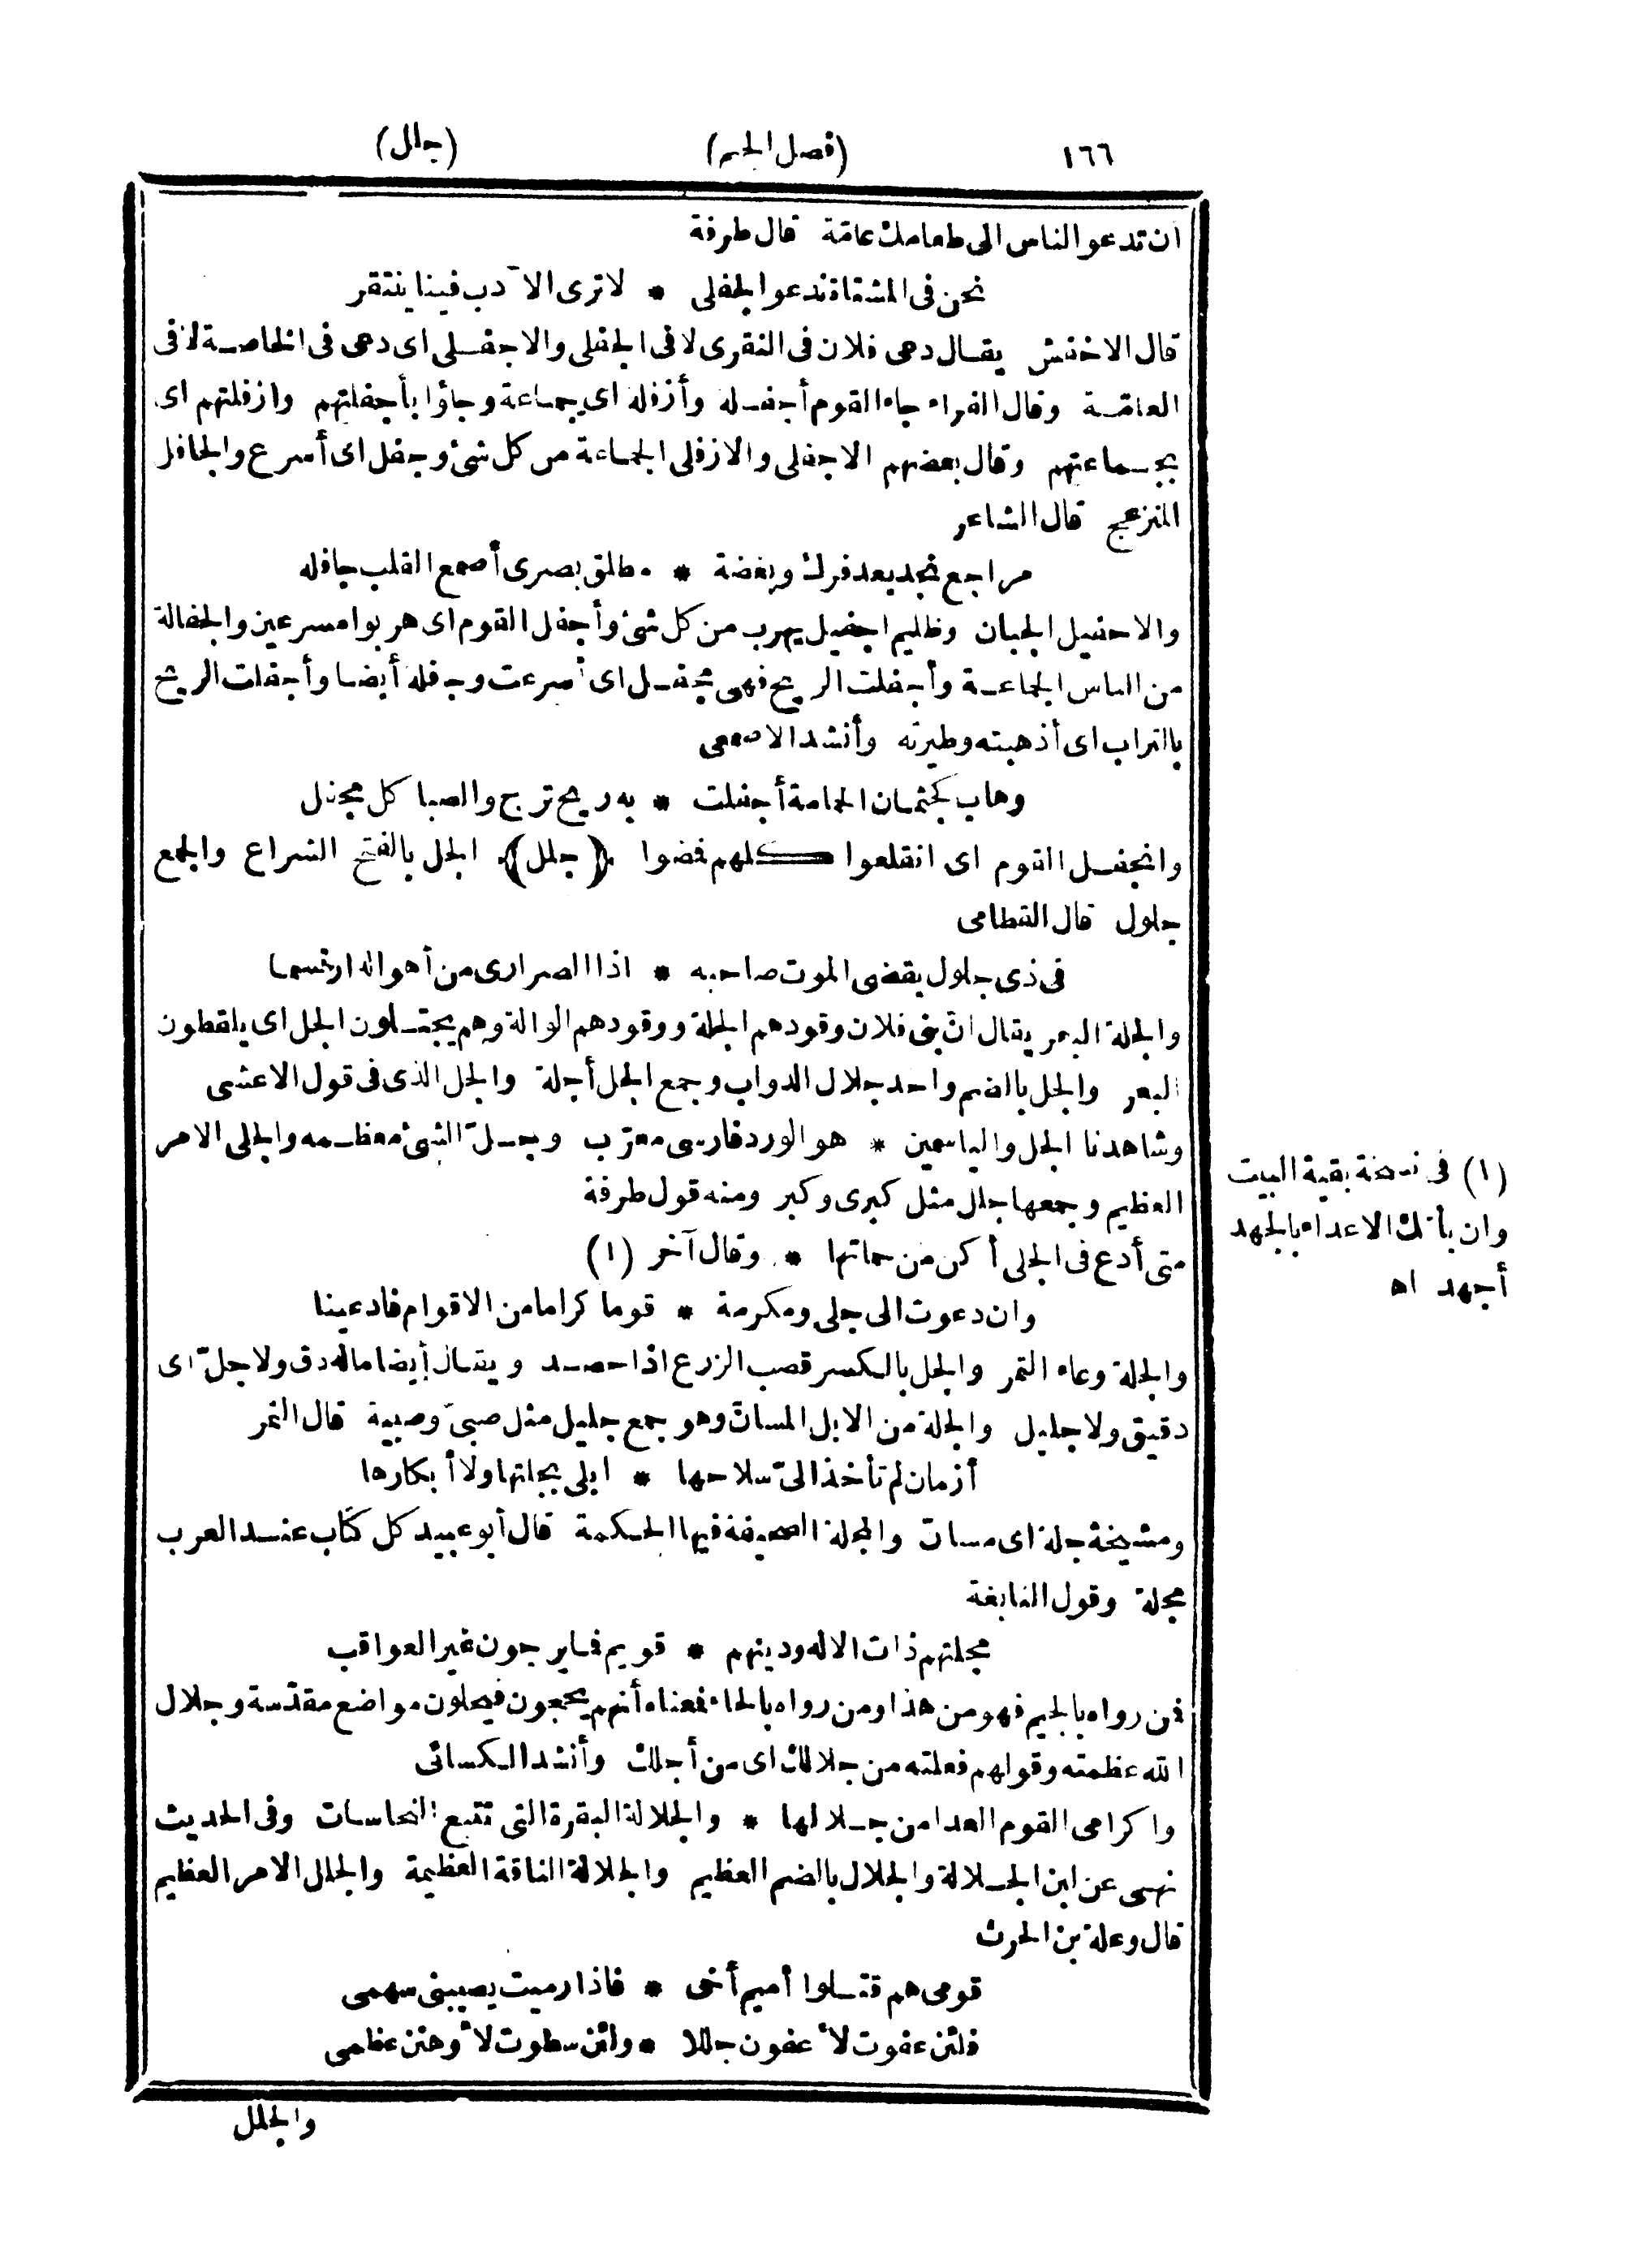 ١٦٦ (فصل الجيم) (جلل)
ان تدعو الناس الى طعامك عامّة قال طرفة
نحن فى المشتاة ندعو الجفلى * لا ترى الآدب فينا ينتقر
قال الاخفش يقال دعى فلان فى النقرى لا فى الجفلى والاجفلى اى دعى فى الخاصة لا فى
العامّة وقال الفراء جاء القوم أجفلة وأزفلة اى جماعة وجاؤا بأجفلتهم وازفلتهم اى
بجماعتهم وقال بعضهم الاجفلى والازفلى الجماعة من كل شئ وجفل اى أسرع والجافل
المنزعج قال الشاعر
مراجع نجد بعد فرك وبغضة * مطلق بصرى أصمع القلب جافله
والاجفيل الجبان وظليم اجفيل يهرب من كل شئ وأجفل القوم اى هربوا مسرعين والجفالة
من الناس الجماعة وأجفلت الريح فهى مجفل اى أسرعت وجفلة أيضا وأجفلت الريح
بالتراب اى أذهبته وطيرته وأنشد الاصمعى
وهاب كجثمان الحمامة أجفلت * به ريح ترج والصبا كل مجفل
وانجفل القوم اى انقلعوا كلهم فمضوا ﴿جلل﴾ الجل بالفتح الشراع والجمع
جلول قال القطامى
فى ذى جلول يقضى الموت صاحبه * اذا الصرارى من أهواله ارتسما
والجلة البعر يقال انّ بنى فلان وقودهم الجلة ووقودهم الوالة وهم يجتلون الجل اى يلقطون
البعر والجل بالضم واحد جلال الدواب وجمع الجل أجلة والجل الذى فى قول الاعشى
وشاهدنا الجل والياسمين * هو الورد فارسى معرّب وجلّ الشئ معظمه والجلى الامر
العظيم وجمعها جلل مثل كبرى وكبر ومنه قول طرفة
متى أدع فى الجلى أكن من حماتها * وقال آخر (١)
وان دعوت الى جلى ومكرمة * قوما كراما من الاقوام فادعينا
والجلة وعاء التمر والجل بالكسر قصب الزرع اذا حصد ويقال أيضا ماله دق ولا جلّ اى
دقيق ولا جليل والجلة من الابل المسانّ وهو جمع جليل مثل صبىّ وصبية قال النمر
أزمان لم تأخذ الىّ سلاحها * ابلى بجلتها ولا أبكارها
ومشيخة جلة اى مسانّ والمجلة الصحيفة فيها الحكمة قال أبو عبيد كل كتاب عند العرب
مجلة وقول النابغة
مجلتهم ذات الاله ودينهم * قويم فما يرجون غير العواقب
فمن رواه بالجيم فهو من هذا ومن رواه بالحاء فمعناه أنهم يحجون فيحلون مواضع مقدّسة وجلال
الله عظمته وقولهم فعلته من جلالك اى من أجلك وأنشد الكسائى
واكرامى القوم العدا من جلالها * والجلالة البقرة التى تتبع النحاسات وفى الحديث
نهى عن لبن الجلالة والجلال بالضم العظيم والجلالة الناقة العظيمة والجلل الامر العظيم
قال وعلة بن الحرث
قومى هم قتلوا أميم أخى * فاذا رميت يصيبنى سهمى
فلئن عفوت لأعفون جللا * ولئن سطوت لأوهنن عظمى
والجلل
(١) فى نسخة بقية البيت
وان يأتك الاعداء بالجهد
أجهد اه